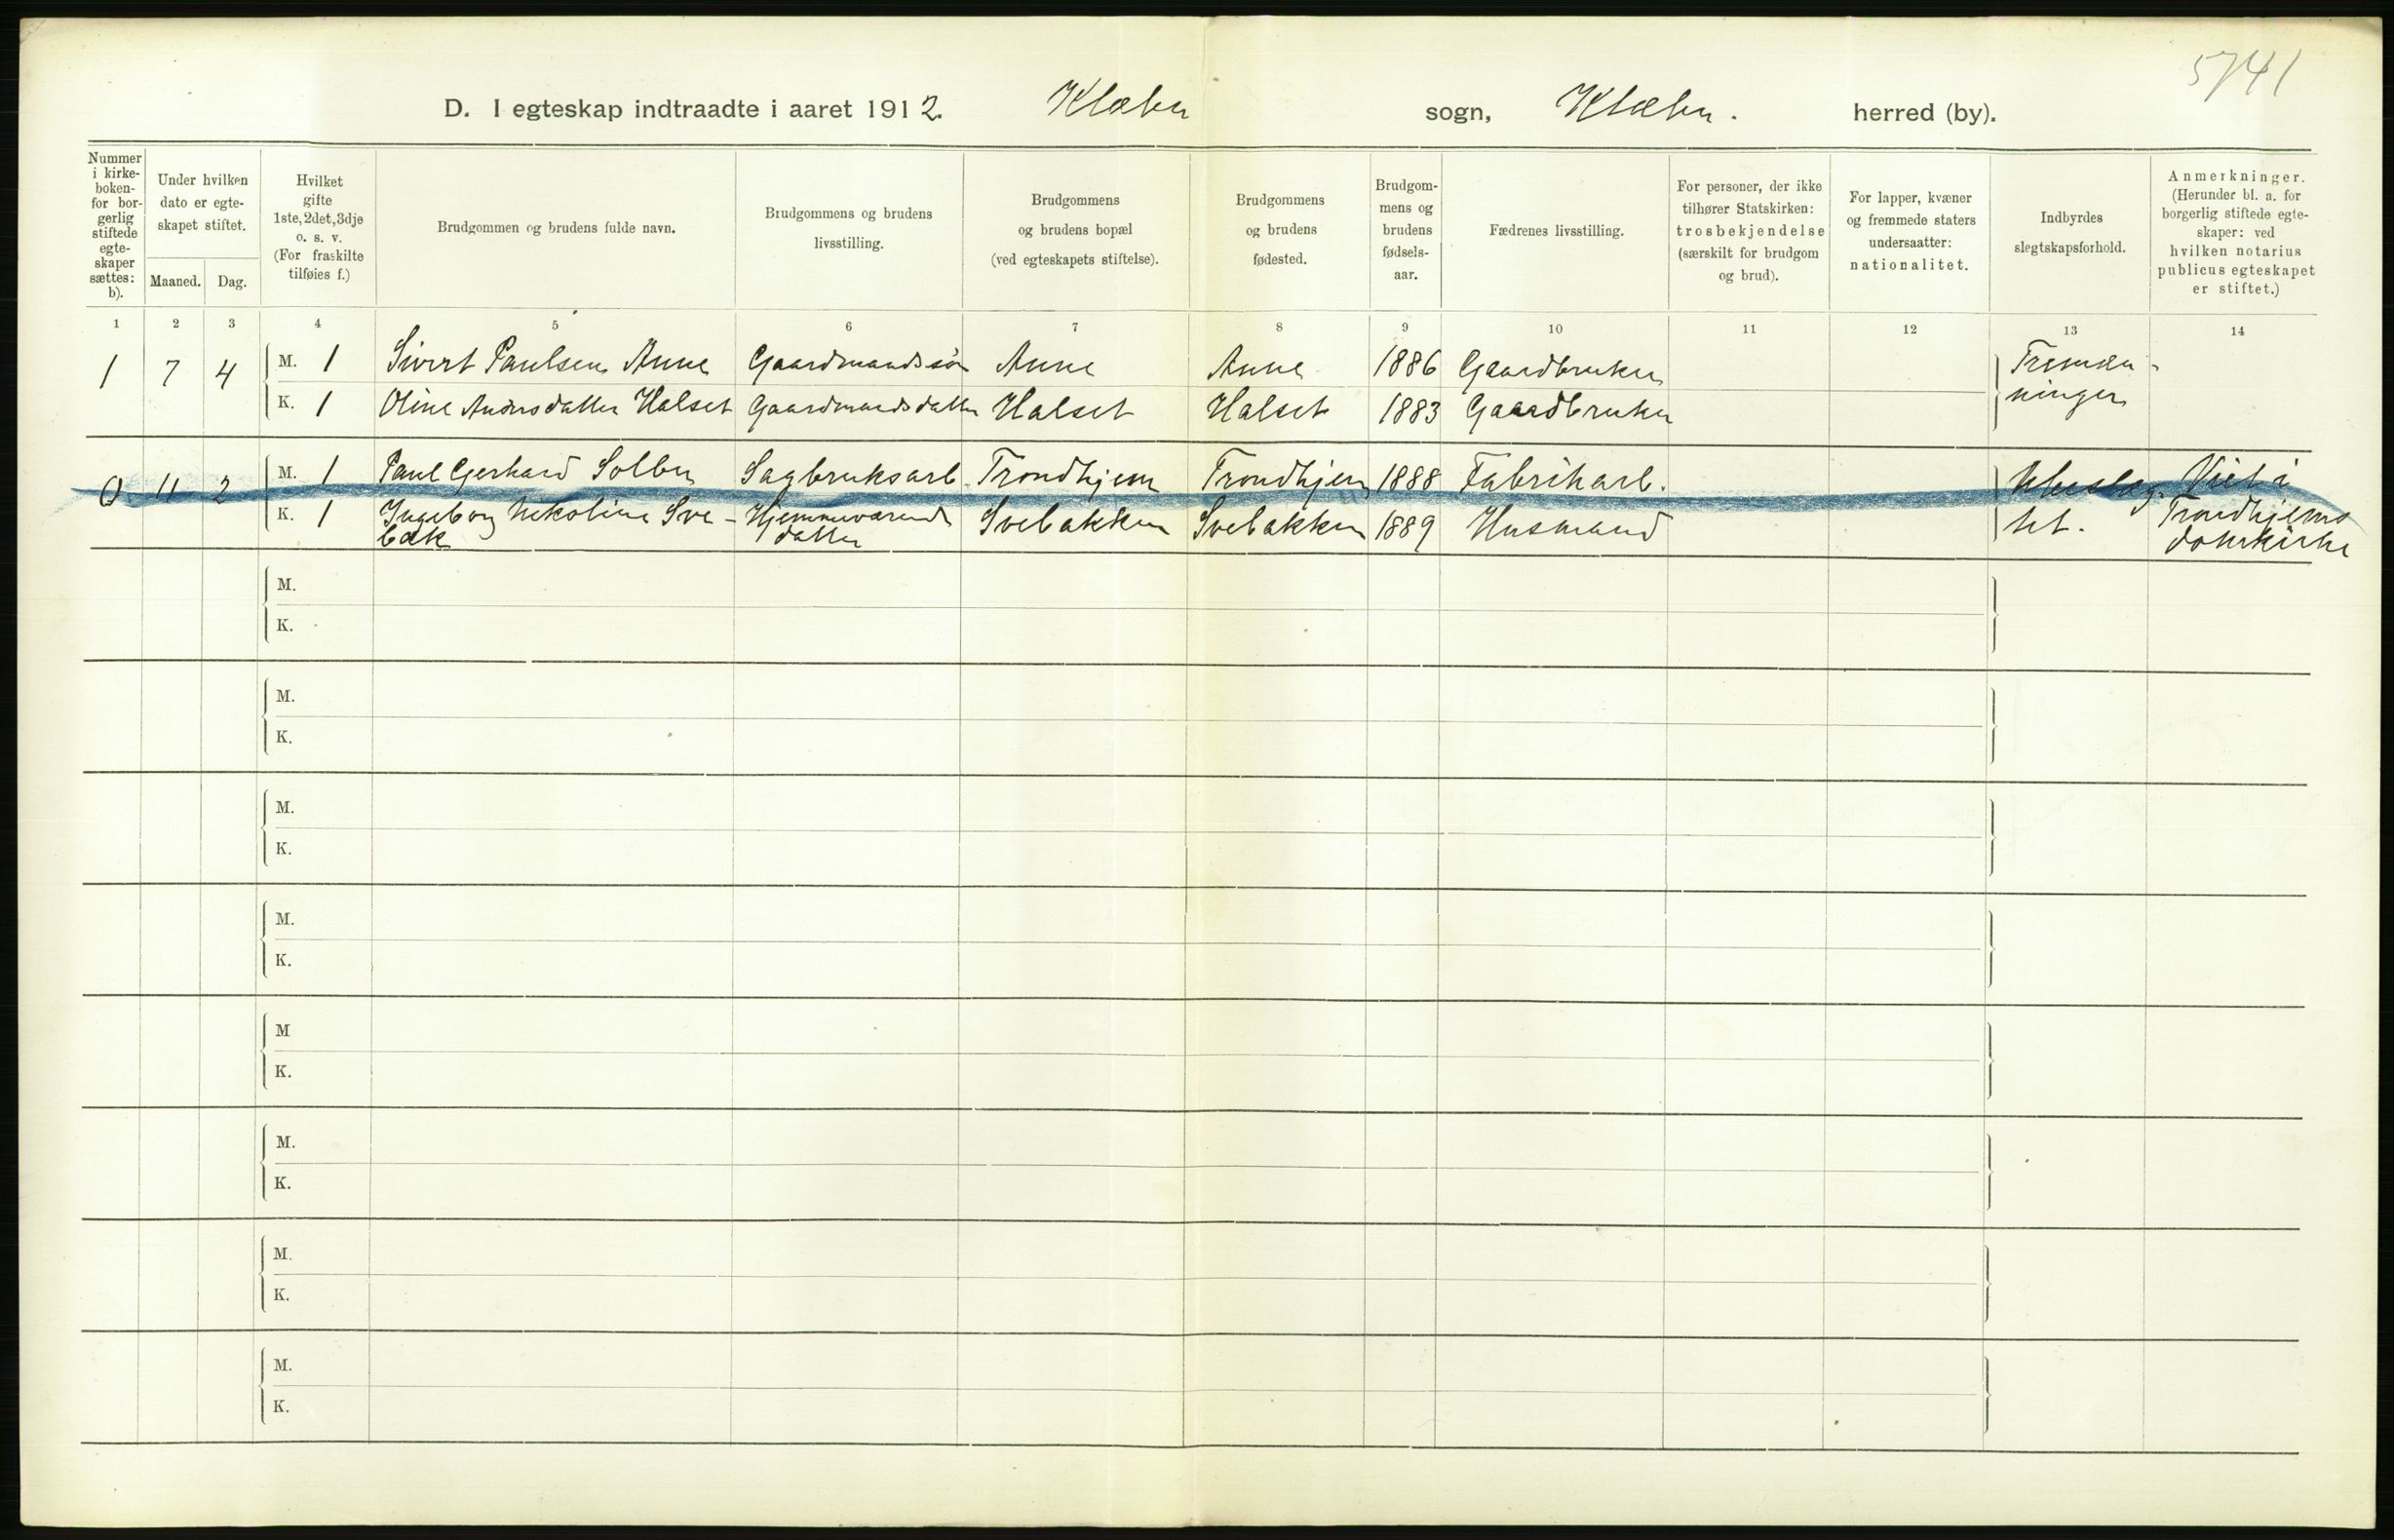 5741
D. I egteskap indtraadte i aaret 1912. Klæbu sogn, Klæbu. herred (by).
Nummer i kirke-boken- for bor-gerlig stiftede egte-skaper sættes: b).
Under hvilken dato er egte-skapet stiftet.
Maaned. Dag.
Hvilket gifte 1ste, 2det, 3dje o. s. v. (For fraskilte tilføies f.)
Brudgommen og brudens fulde navn.
Brudgommens og brudens livsstilling.
Brudgommens og brudens bopæl (ved egteskapets stiftelse).
Brudgommens og brudens fødested.
Brudgom-mens og brudens fødsels-aar.
Fædrenes livsstilling.
For personer, der ikke tilhører Statskirken: trosbekjendelse (særskilt for brudgom og brud).
For lapper, kvæner og fremmede staters undersaatter: nationalitet.
Indbyrdes slegtskapsforhold.
Anmerkninger. (Herunder bl. a. for borgerlig stiftede egte-skaper: ved hvilken notarius publicus egteskapet er stiftet.)
1 2 3 4 5 6 7 8 9 10 11 12 13 14
1 7 4 M. 1 Sivert Paulsen Anne Gaardmandssøn Anne Anne 1886 Gaardbruker Tremen-
K. 1 Oline Andersdatter Halset Gaardmandsdatter Halset Halset 1883 Gaardbruker ninger
0 11 2 M. 1 Paul Gerhard Solbu Sagbruksarb. Trondhjem Trondhjem 1888 Fabrikarb. Ubeslæg- Viet i
K. 1 Ingeborg Nikoline Sve- Hjemmeværende Svebakken Svebakken 1889 Husmand tet. Trondhjems
bak datter domkirke
M.
K.
M.
K.
M.
K.
M.
K.
M
K.
M.
K.
M.
K.
M.
K.